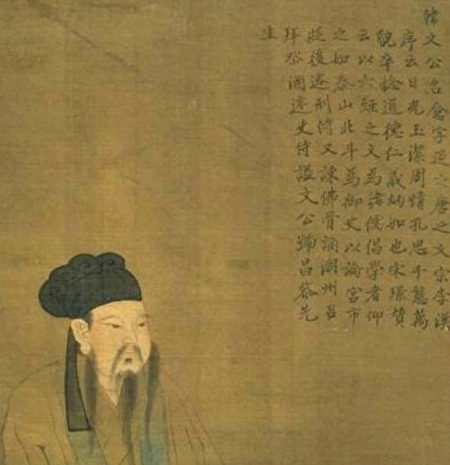 韓文公名愈字退之唐之文宗李漢
序云日光玉潔周情孔思千態萬
貌卒捴道德仁義炳如也宋璟贊
云以六經之文為諸儒倡學者仰
之如泰山北斗為御史以論宮市
貶後遷刑侍又諫佛骨謫潮州召
拜祭酒遷吏侍謚文公號昌黎先
生